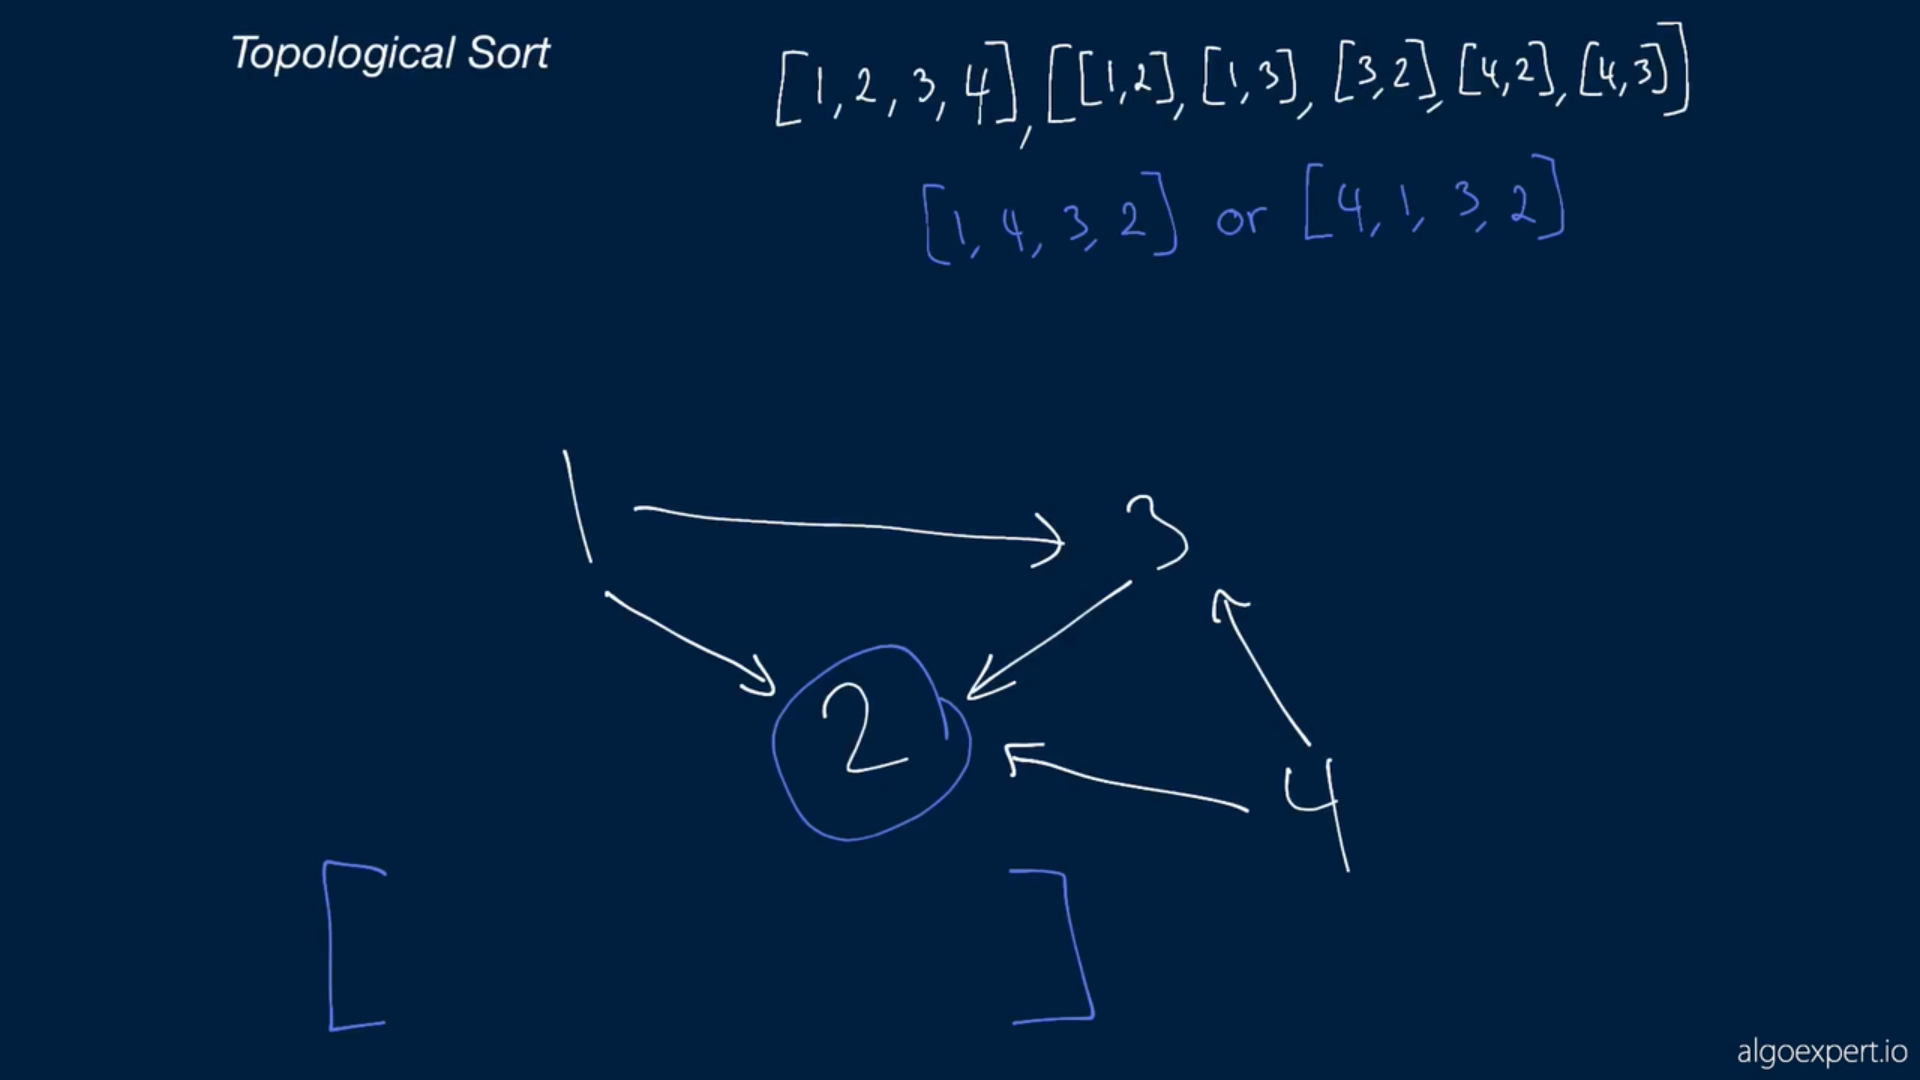 Topological Sort
[1, 2, 3, 4], [[1,2], [1,3], [3,2], [4,2], [4,3]]
[1, 4, 3, 2] or [4, 1, 3, 2]
1
3
2
4
[ ]
algoexpert.io